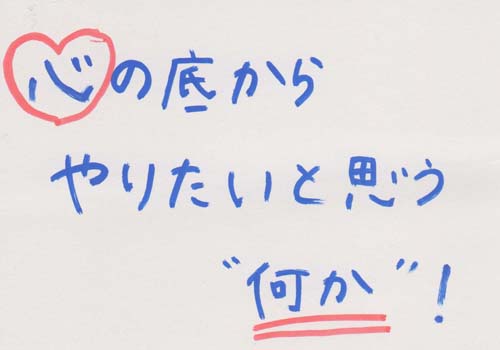 心の底から
やりたいと思う
“何か”!